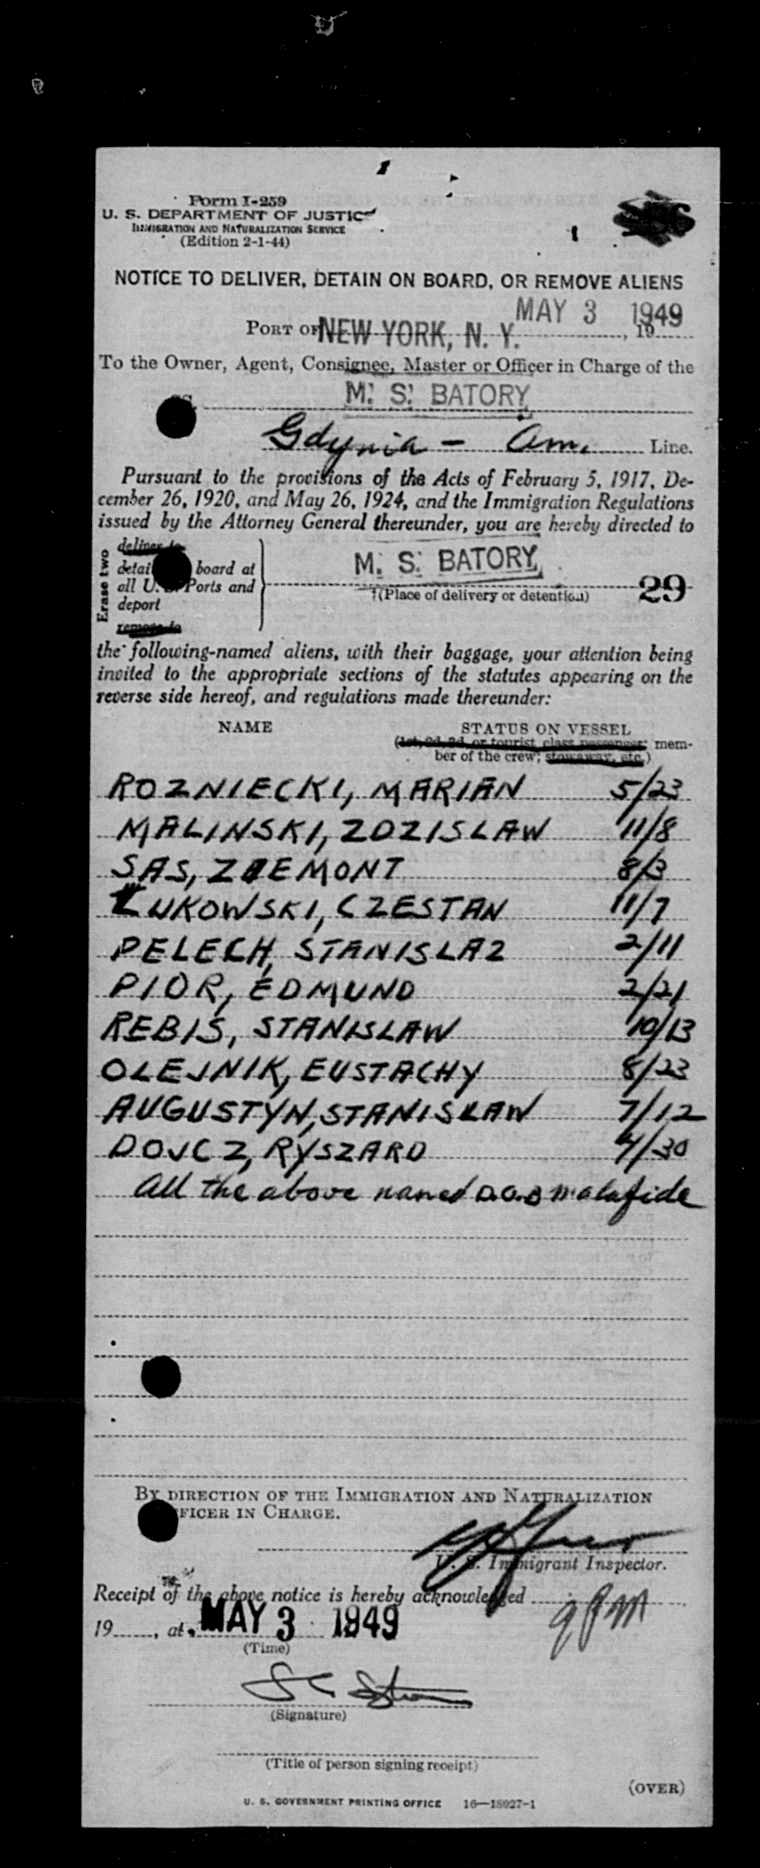 Form I-259
U. S. DEPARTMENT OF JUSTICE
IMMIGRATION AND NATURALIZATION SERVICE
(Edition 2-1-44)
NOTICE TO DELIVER, DETAIN ON BOARD, OR REMOVE ALIENS
MAY 3 1949
PORT OF NEW YORK, N. Y. , 19
To the Owner, Agent, Consignee, Master or Officer in Charge of the
SS. M. S. BATORY
Gdynia - Am. Line.
Pursuant to the provisions of the Acts of February 5, 1917, De-
cember 26, 1920, and May 26, 1924, and the Immigration Regulations
issued by the Attorney General thereunder, you are hereby directed to
Erase two
deliver to
detain board at
all U. S. Ports and
deport
remove to
M. S. BATORY
†(Place of delivery or detention)
29
the following-named aliens, with their baggage, your attention being
invited to the appropriate sections of the statutes appearing on the
reverse side hereof, and regulations made thereunder:
NAME STATUS ON VESSEL
(1st, 2d, 3d, or tourist class passenger; mem-
ber of the crew; stowaway, etc.)
ROZNIECKI, MARIAN 5/23
MALINSKI, ZDZISLAW 11/8
SAS, ZIEMONT 8/3
LUKOWSKI, CZESTAN 11/7
PELECH, STANISLAZ 2/11
PIOR, EDMUND 2/21
REBIS, STANISLAW 10/13
OLEJNIK, EUSTACHY 8/23
AUGUSTYN, STANISLAW 7/12
DOJCZ, RYSZARD 4/30
All the above named D.O.B malafide
BY DIRECTION OF THE IMMIGRATION AND NATURALIZATION
OFFICER IN CHARGE.
U. S. Immigrant Inspector.
Receipt of the above notice is hereby acknowledged
19, at MAY 3 1949 9 PM
(Time)
(Signature)
(Title of person signing receipt)
(OVER)
U. S. GOVERNMENT PRINTING OFFICE 16—18027-1